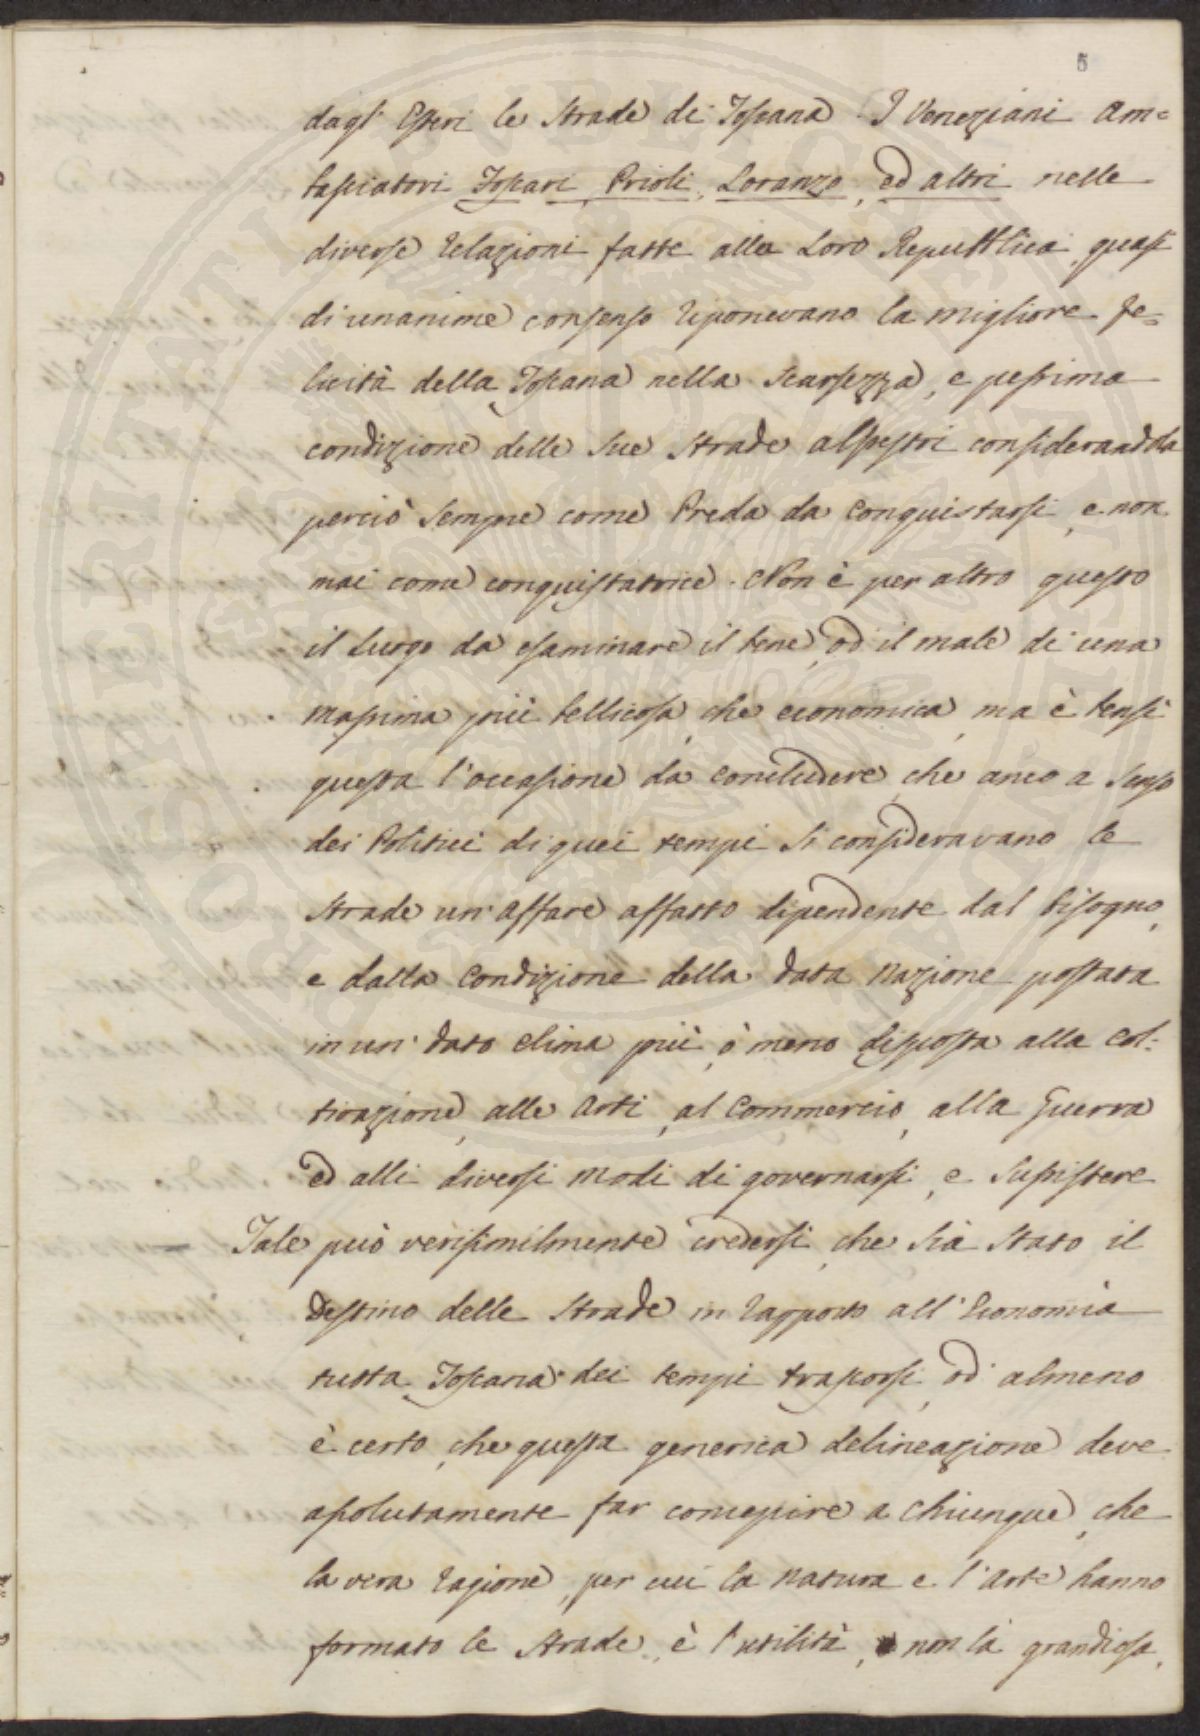 5
dagl' Esteri le Strade di Toscana. I Veneziani Am=
basciatori Foscari, Prioli, Loranzo, ed altri nelle
diverse Relazioni fatte alla Loro Repubblica, quasi
di unanime consenso riponevano la migliore fe=
licità della Toscana nella Scarsezza, e pessima
condizione delle Sue Strade alpestri considerandola
perciò Sempre come Preda da Conquistarsi, e non
mai come conquistatrice. Non è per altro questo
il Luogo da esaminare il bene, od il male di una
massima più bellicosa, che economica, ma è bensì
questa l'occasione da concludere, che anco a Senso
dei Politici di quei tempi si consideravano le
Strade un' affare affatto dipendente dal bisogno,
e dalla Condizione della data Nazione postata
in un' dato Clima più, o meno disposta alla Col:
tivazione, alle Arti, al Commercio, alla Guerra
ed alli diversi Modi di governarsi, e Sussistere
Tale può verisimilmente credersi, che sia Stato il
Destino delle Strade in rapporto all' Economia
tutta Toscana dei tempi trascorsi, od almeno
è certo, che questa generica delineazione deve
assolutamente far concepire a Chiunque, che
la vera ragione, per cui la Natura e l'Arte hanno
formato le Strade, è l'utilità, e non la grandiosa,
PROSPERITATI PUBLICAE AUGENDAE